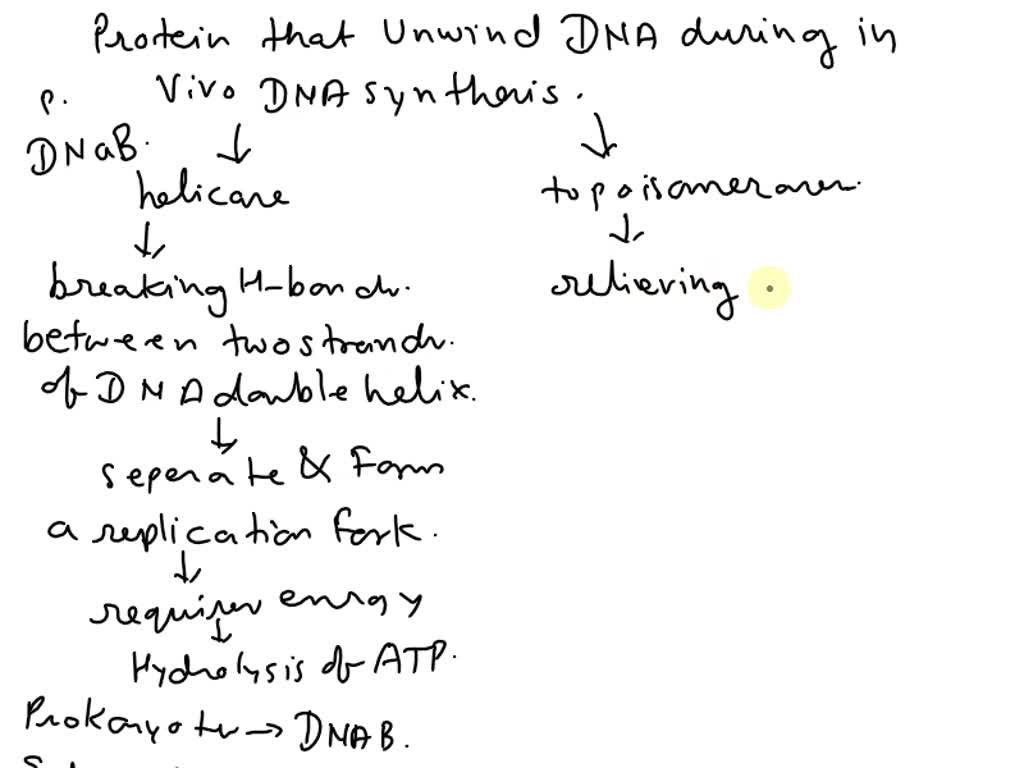 Protein that Unwind DNA during in
Vivo DNA synthesis.
P.
DNaB.
helicase
topoisomerases.
breaking H-bonds.
relieving
between two strands.
of DNA double helix.
seperate & Form
a replication fork.
requires enrgy
Hydrolysis of ATP.
Prokaryotes → DNAB.